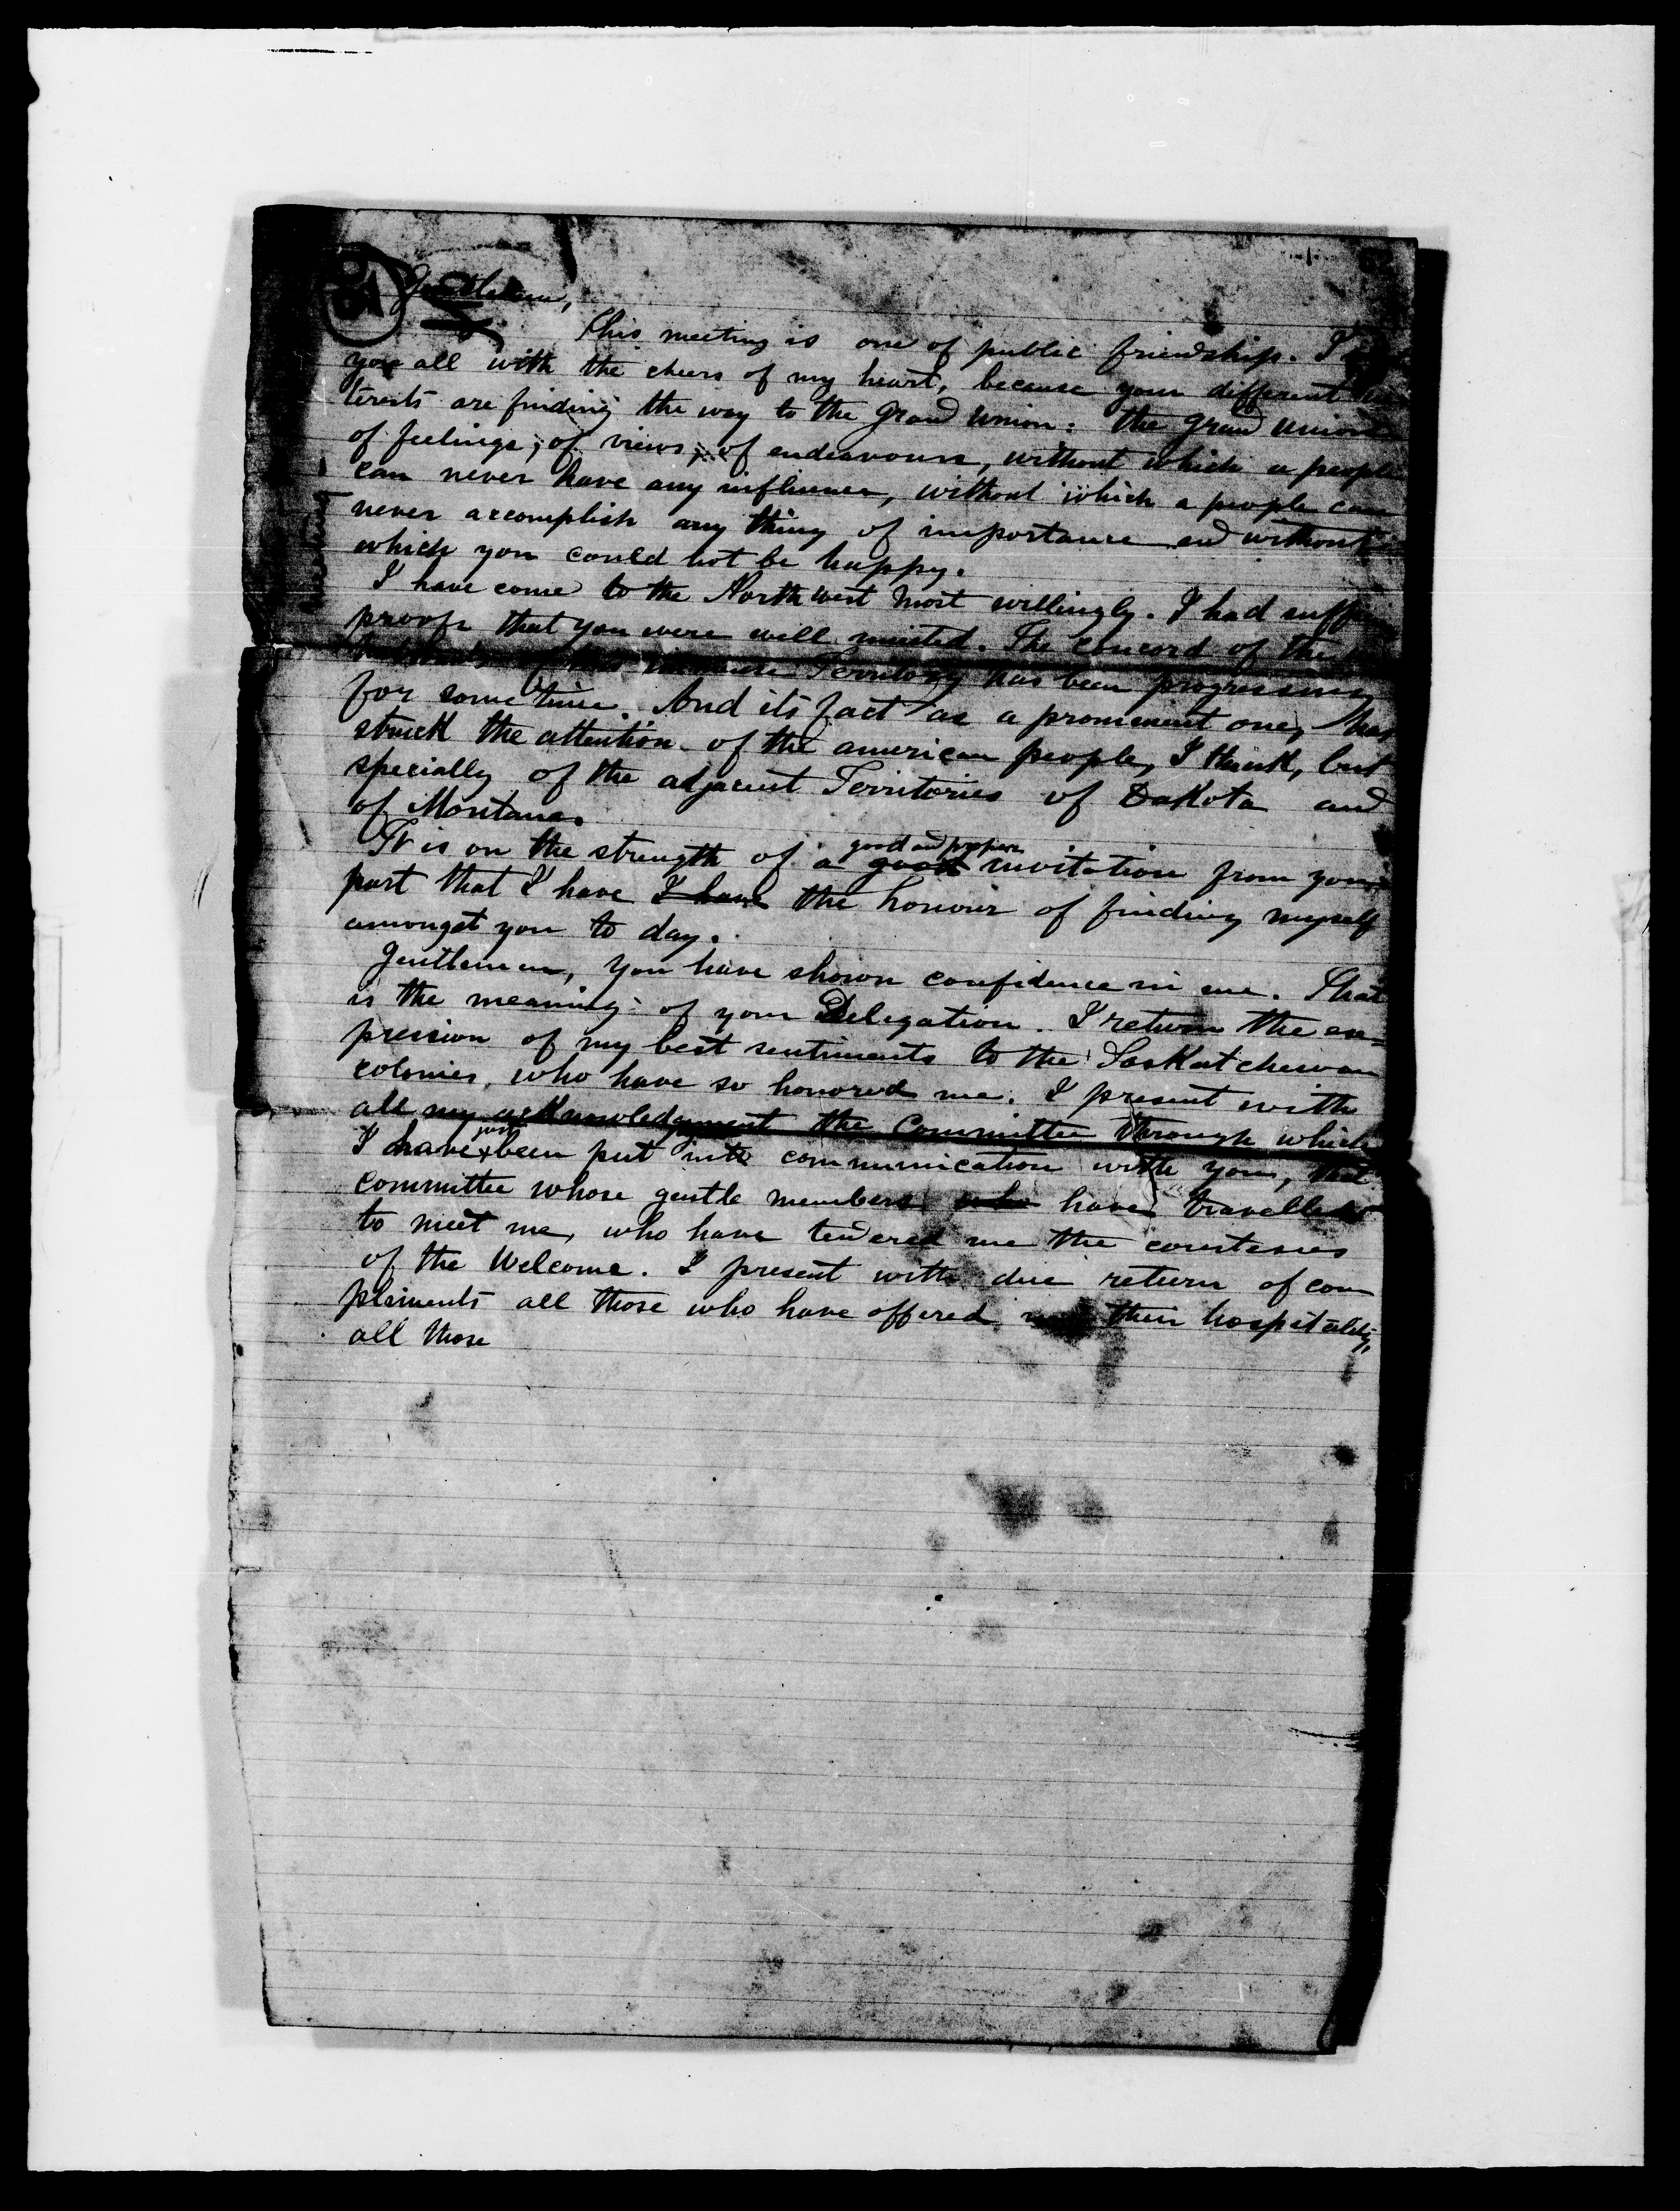 Gentlemen,
This meeting is one of public friendship. I
you all with the cheers of my heart, because your different in
terests are finding the way to the grand union: the grand union
of feelings, of views, of endeavours, without which a people
can never have any influence, without which a people can
never accomplish any thing of importance and without
which you could not be happy.
I have come to the North west most willingly. I had
proofs that you were well united. The concord of the
Territory has been progressing
for some time. And its fact as a prominent one, has
struck the attention of the american people, I think, but
specially of the adjacent Territories of Dakota and
of Montana.
good and proper
It is on the strength of a good invitation from your
part that I have I have the honour of finding myself
amongst you to day.
Gentlemen, you have shown confidence in me. That
is the meaning of your Delegation. I return the ex=
pression of my best sentiments to the Saskatchewan
colonies, who have so honored me. I present with
all my acknowledgment the Committee through which
just
I have been put into communication with you, that
committee whose gentle members who have travelled
to meet me, who have tendered me the courtesies
of the Welcome. I present with due return of com
pliments all those who have offered their hospitality,
all those